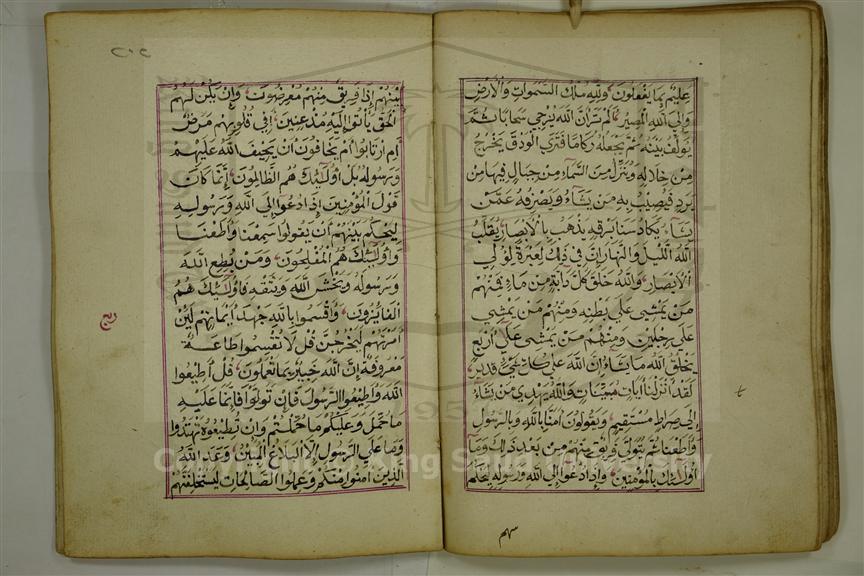 عليم بما يفعلون ولله ملك السموات والارض
والي الله المصير الم تر ان الله يزجي سحابا ثم
يؤلف بينه ثم يجعله ركاما فتري الودق يخرج
من خلاله وينزل من السماء من جبال فيها من
برد فيصيب به من يشاء ويصرفه عمن
يشاء يكاد سنا برقه يذهب بالابصار يقلب
الله الليل والنهار ان في ذلك لعبرة لاولي
الابصار والله خلق كل دابة من ماء فمنهم
من يمشي علي بطنه ومنهم من يمشي
علي رجلين ومنهم من يمشي علي اربع
يخلق الله ما يشاء ان الله علي كل شيء قدير
لقد انزلنا ايات مبينات والله يهدي من يشاء
الي صراط مستقيم ويقولون امنا بالله وبالرسول
واطعنا ثم يتولي فريق منهم من بعد ذلك وما
اولئك بالمؤمنين واذا دعوا الي الله ورسوله ليحكم
بينهم اذا فريق منهم معرضون وان يكن لهم
الحق ياتوا اليه مذعنين افي قلوبهم مرض
ام ارتابوا ام يخافون ان يحيف الله عليهم
ورسوله بل اولئك هم الظالمون انما كان
قول المؤمنين اذا دعوا الي الله ورسوله
ليحكم بينهم ان يقولوا سمعنا واطعنا
واولئك هم المفلحون ومن يطع الله
ورسوله ويخش الله ويتقه فاولئك هم
الفائزون واقسموا بالله جهد ايمانهم لئن
امرتهم ليخرجن قل لا تقسموا طاعة
معروفة ان الله خبير بما تعملون قل اطيعوا
الله واطيعوا الرسول فان تولوا فانما عليه
ما حمل وعليكم ما حملتم وان تطيعوه تهتدوا
وما علي الرسول الا البلاغ المبين وعد الله
الذين امنوا منكم وعملوا الصالحات ليستخلفنهم
ربع
Copyright © King Saud University